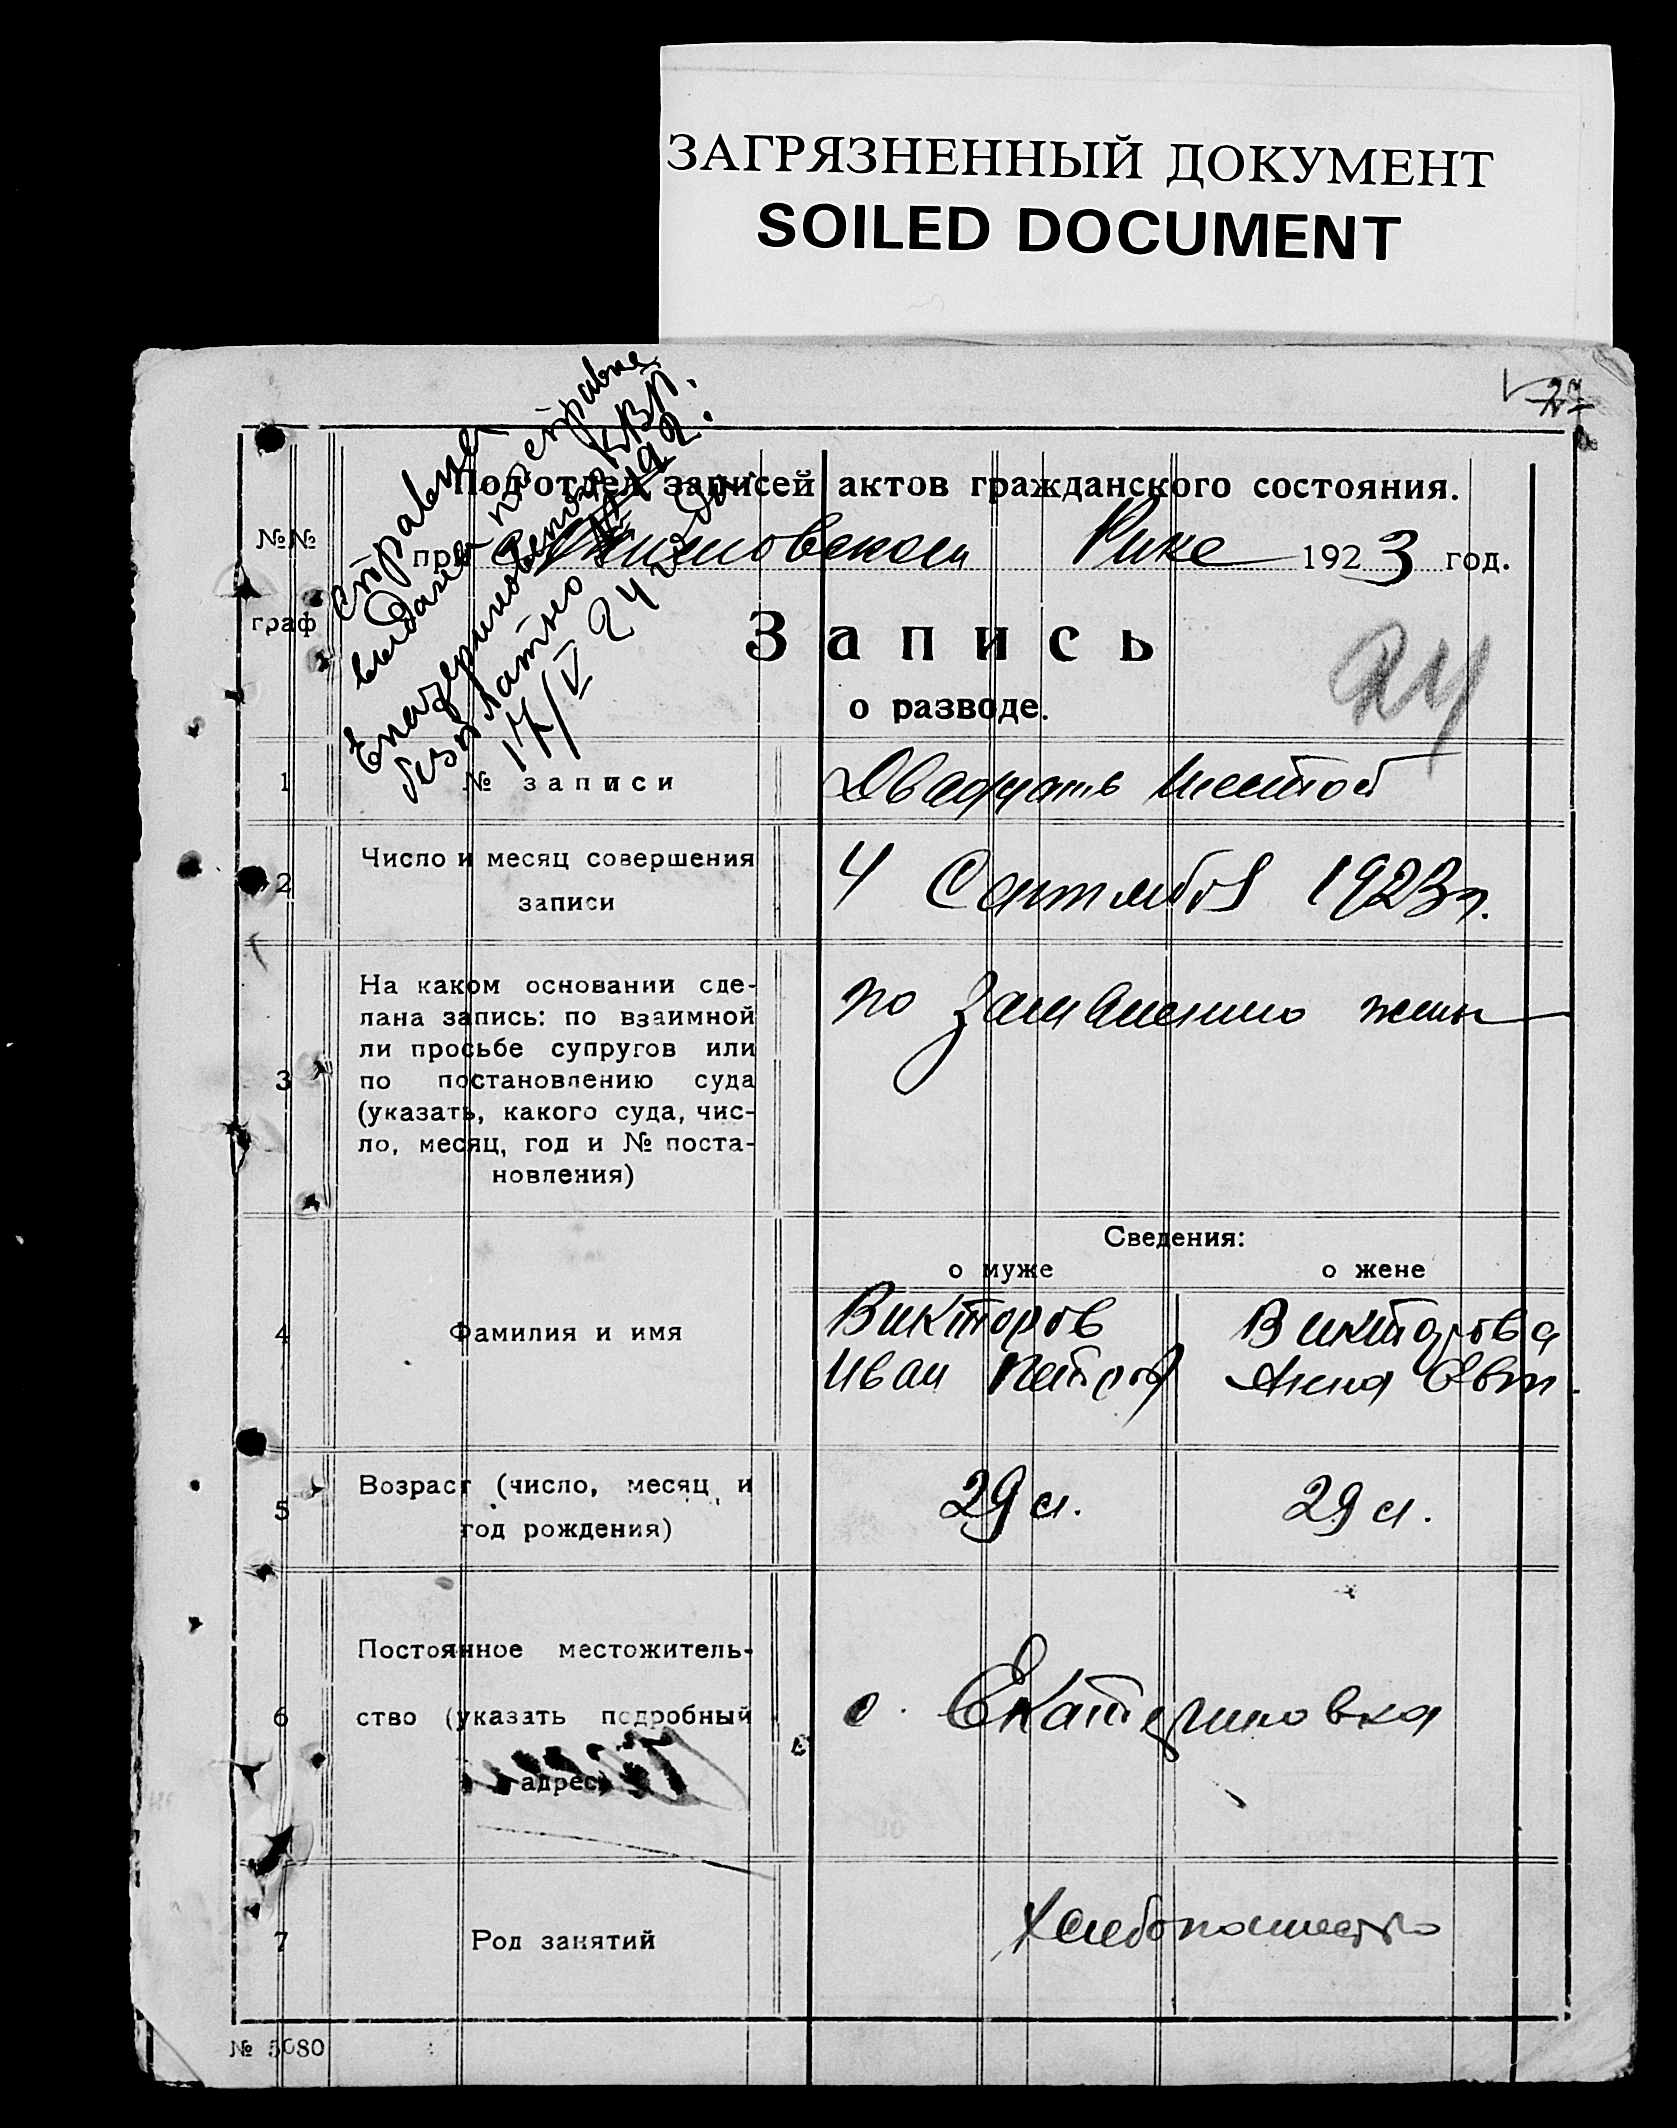 ЗАГРЯЗНЕННЫЙ ДОКУМЕНТ
SOILED DOCUMENT
27
справка
выдана по справке
Екатериновской КВП.
бесплатно
17/V 24 г.
Подотдел записей актов гражданского состояния.
№№
при Рике 1923 год.
граф
Запись
24
о разводе.
1 № записи Двадцать шестой
2 Число и месяц совершения 4 Сентября 1923 г.
записи
На каком основании сде- по заявлению жены
лана запись: по взаимной
ли просьбе супругов или
3 по постановлению суда
(указать, какого суда, чис-
ло, месяц, год и № поста-
новления)
Сведения:
о муже о жене
4 Фамилия и имя Викторов Викторова
Иван Петров Анна Евт.
5 Возраст (число, месяц и 29 л. 29 л.
год рождения)
Постоянное местожитель-
6 ство (указать подробный с. Екатериновка
адрес)
7 Род занятий Хлебопашество
№ 5080